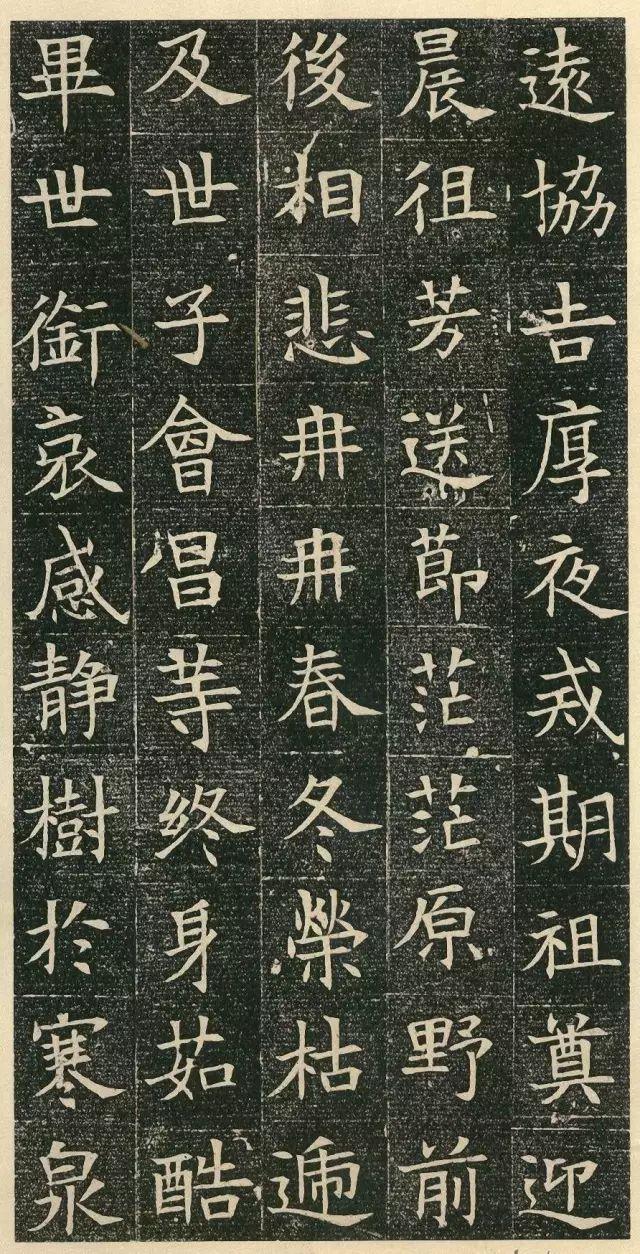 遠協吉厚夜戒期祖奠迎
晨徂芳送節茫茫原野前
後相悲冉冉春冬榮枯遞
及世子會昌等終身茹酷
畢世銜哀感静樹於寒泉